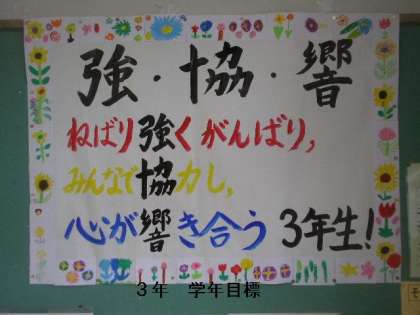 強・協・響
ねばり強くがんばり,
みんなで協力し,
心が響き合う 3年生!
３年　学年目標